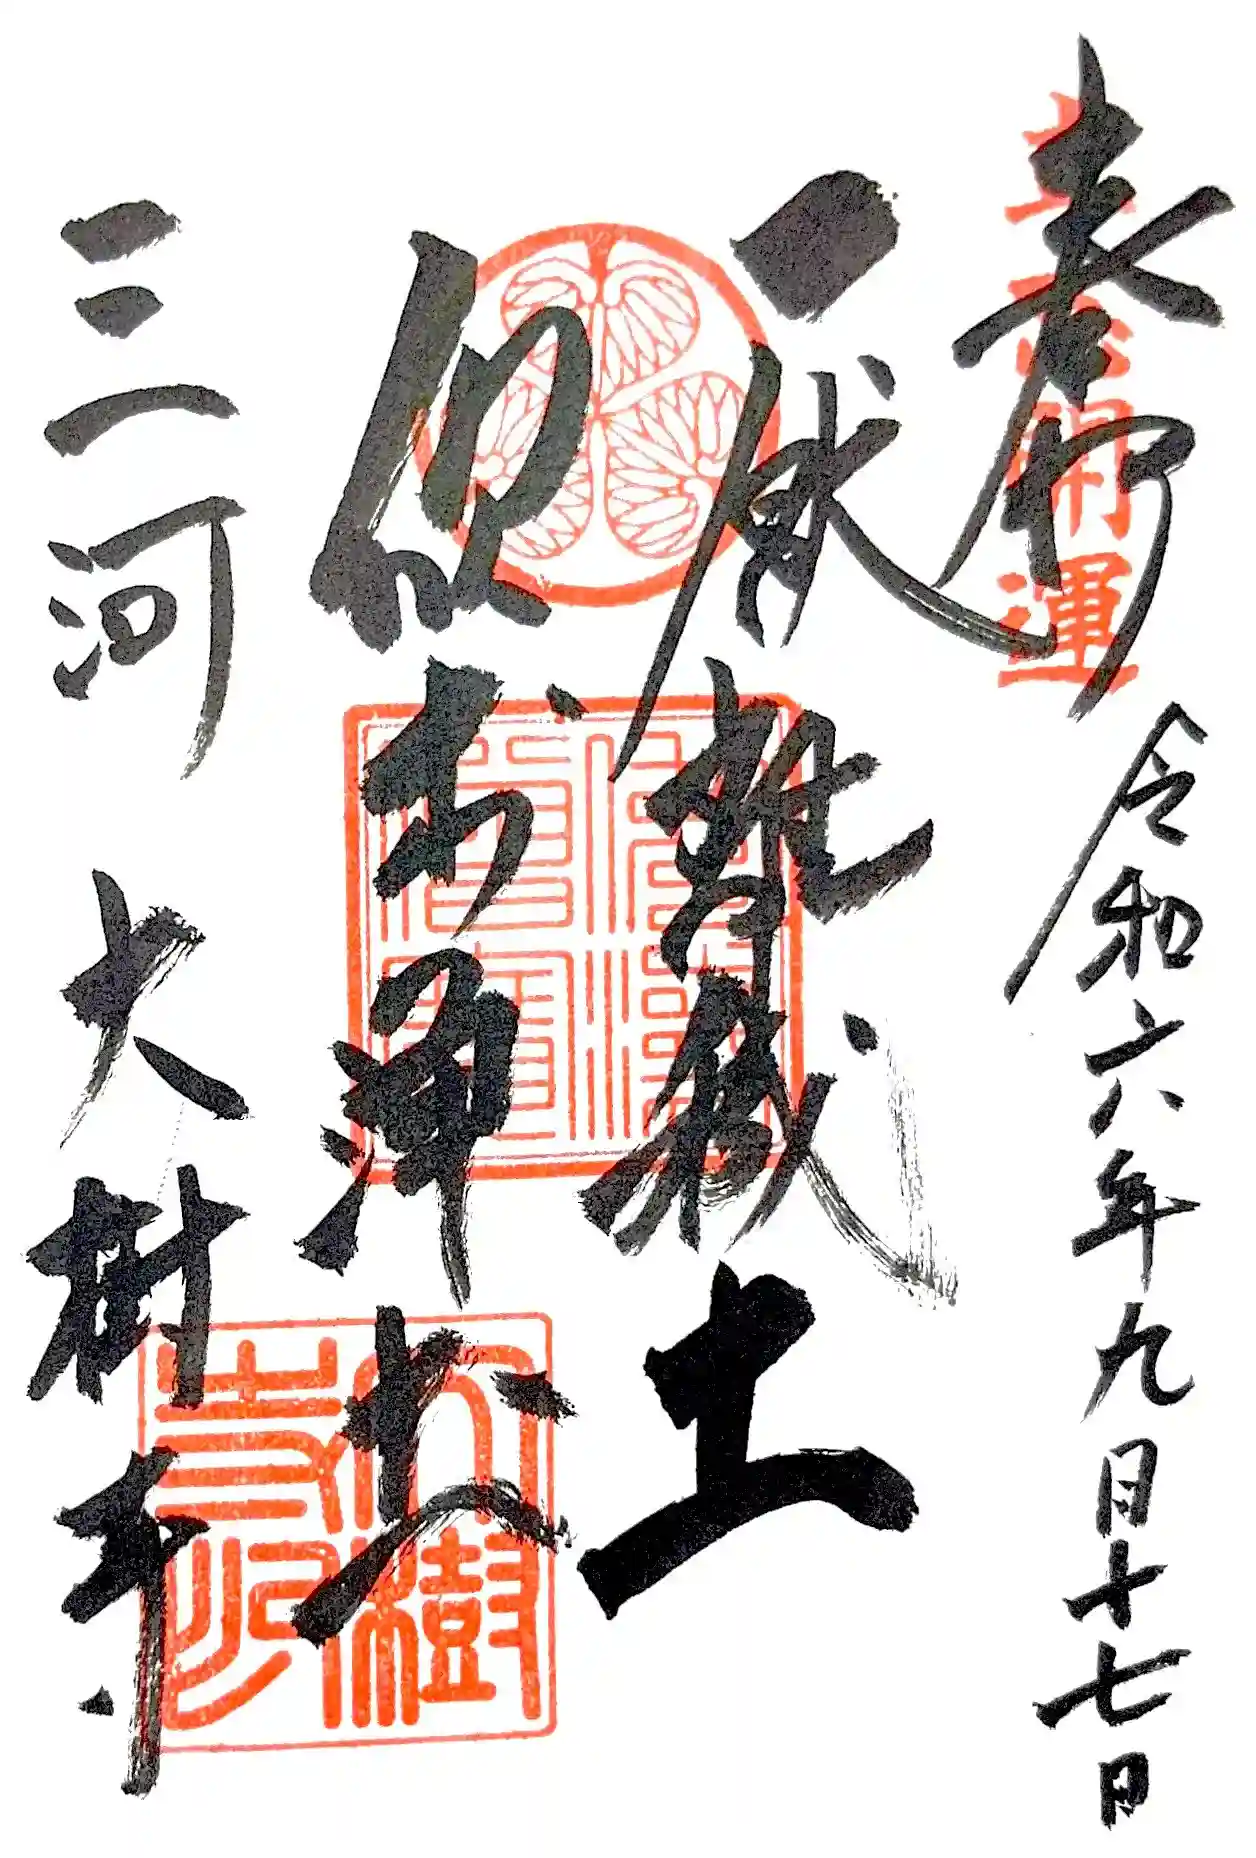 奉拝
開運
令和六年九月十七日
厭離穢土
欣求浄土
三河 大樹寺
大樹寺印